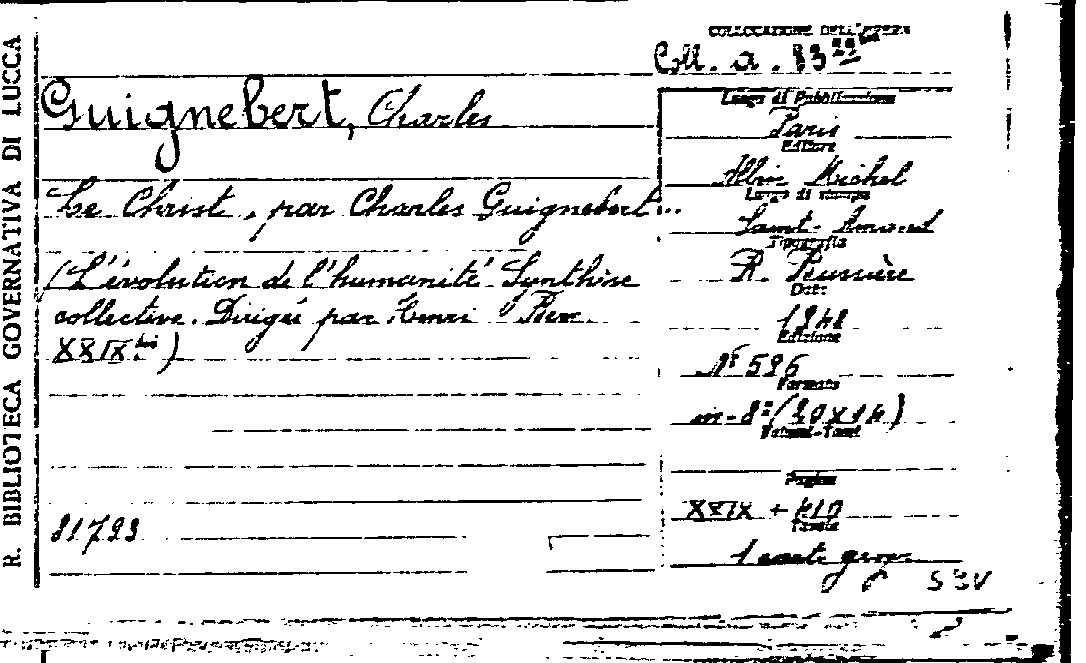 R. BIBLIOTECA GOVERNATIVA DI LUCCA
COLLOCAZIONE DELL'OPERA
Coll. a. 83
Guignebert, Charles
Le Christ, par Charles Guignebert...
(L'évolution de l'humanité Synthèse
collective. Dirigée par Henri Berr.
XXIX bis)
81793
Luogo di Pubblicazione
Paris
Editore
Albin Michel
Luogo di stampa
Saint-Amand
Tipografia
R. Bussière
Data
1948
Edizione
N° 596
Formato
in-8° (20x14)
Volumi-Tomi
Pagine
XXIX + 410
Tavole
1 carte geogr.
SBV